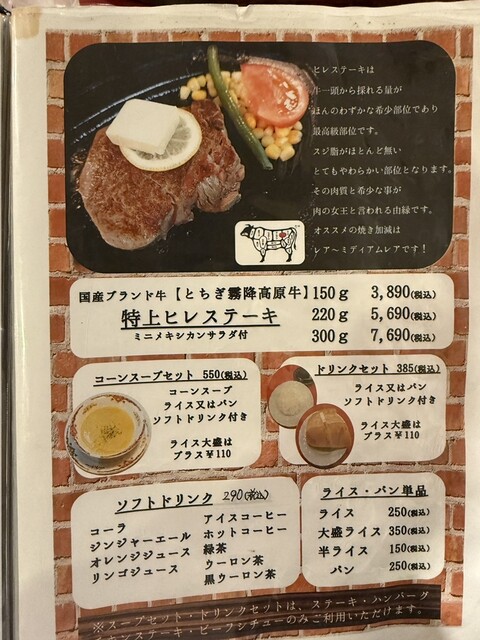 ヒレステーキは
牛一頭から採れる量が
ほんのわずかな希少部位であり
最高級部位です。
スジ脂がほとんど無い
とてもやわらかい部位となります。
その肉質と希少な事が
肉の女王と言われる由縁です。
オススメの焼き加減は
レア〜ミディアムレアです！
国産ブランド牛【とちぎ霧降高原牛】150g 3,890(税込)
特上ヒレステーキ 220g 5,690(税込)
ミニメキシカンサラダ付 300g 7,690(税込)
コーンスープセット 550(税込)
コーンスープ
ライス又はパン
ソフトドリンク付き
ライス大盛は
プラス¥110
ドリンクセット 385(税込)
ライス又はパン
ソフトドリンク付き
ライス大盛は
プラス¥110
ソフトドリンク 290(税込)
コーラ
ジンジャーエール
オレンジジュース
リンゴジュース
アイスコーヒー
ホットコーヒー
緑茶
ウーロン茶
黒ウーロン茶
ライス・パン単品
ライス 250(税込)
大盛ライス 350(税込)
半ライス 150(税込)
パン 250(税込)
※スープセット・ドリンクセットは、ステーキ・ハンバーグ
ステーキ・ビーフシチューのみご利用いただけます。